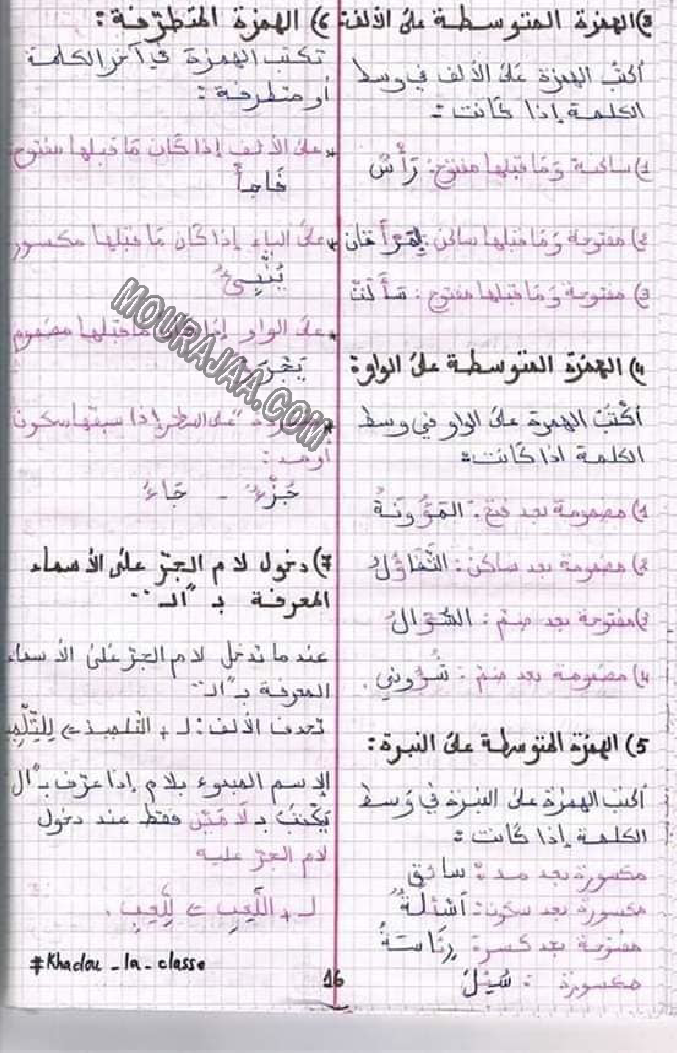 3) الهمزة المتوسطة على الألف:
أكتب الهمزة على الألف في وسط
الكلمة إذا كانت :
1) ساكنة وما قبلها مفتوح: رَأْسٌ
2) مفتوحة وما قبلها ساكن:
3) مفتوحة وما قبلها مفتوح : سَأَلَتْ
4) الهمزة المتوسطة على الواو:
أكتب الهمزة على الواو في وسط
الكلمة اذا كانت :
1) مضمومة بعد فتح: المَؤُونَةُ
2) مضمومة بعد ساكن: التَّفَاؤُلُ
3) مفتوحة بعد ضم : السُّؤَالُ
4) مضمومة بعد ضم : شُؤُوني .
5) الهمزة المتوسطة على النبرة:
أكتب الهمزة على النبرة في وسط
الكلمة إذا كانت :
مكسورة بعد مد : سائق
مكسورة بعد سكون: أسْئِلَةٌ
مفتوحة بعد كسرة رِئَاسَةُ
مكسورة : سُئِلَ
6) الهمزة المتطرفة :
تكتب الهمزة في آخر الكلمة
أو متطرفة :
* على الألف إذا كان ما قبلها مفتوح
* على الياء إذا كان ما قبلها مكسور
يُنْبِئُ
* على الواو ما قبلها مضموم
* على السطر إذا سبقها سكون
أو مد :
جُزْءٌ - جَاءَ
7) دخول لام الجر على الأسماء
المعرفة بـ "الـ"
عندما تدخل لام الجر على الأسماء
المعرفة بـ "الـ"
تحذف الألف : لـ + التلميذ
الإسم المبدوء بلام إذا عرف بـ "ال"
يكتب بـ لامين فقط عند دخول
لام الجر عليه
لـ + اللَّعِبِ => لِلَّعِبِ .
#Khadou_la_classe
16
MOURAJAA.COM